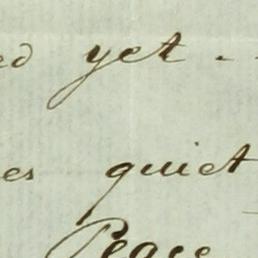 ed yet - -
es quiet
Peace